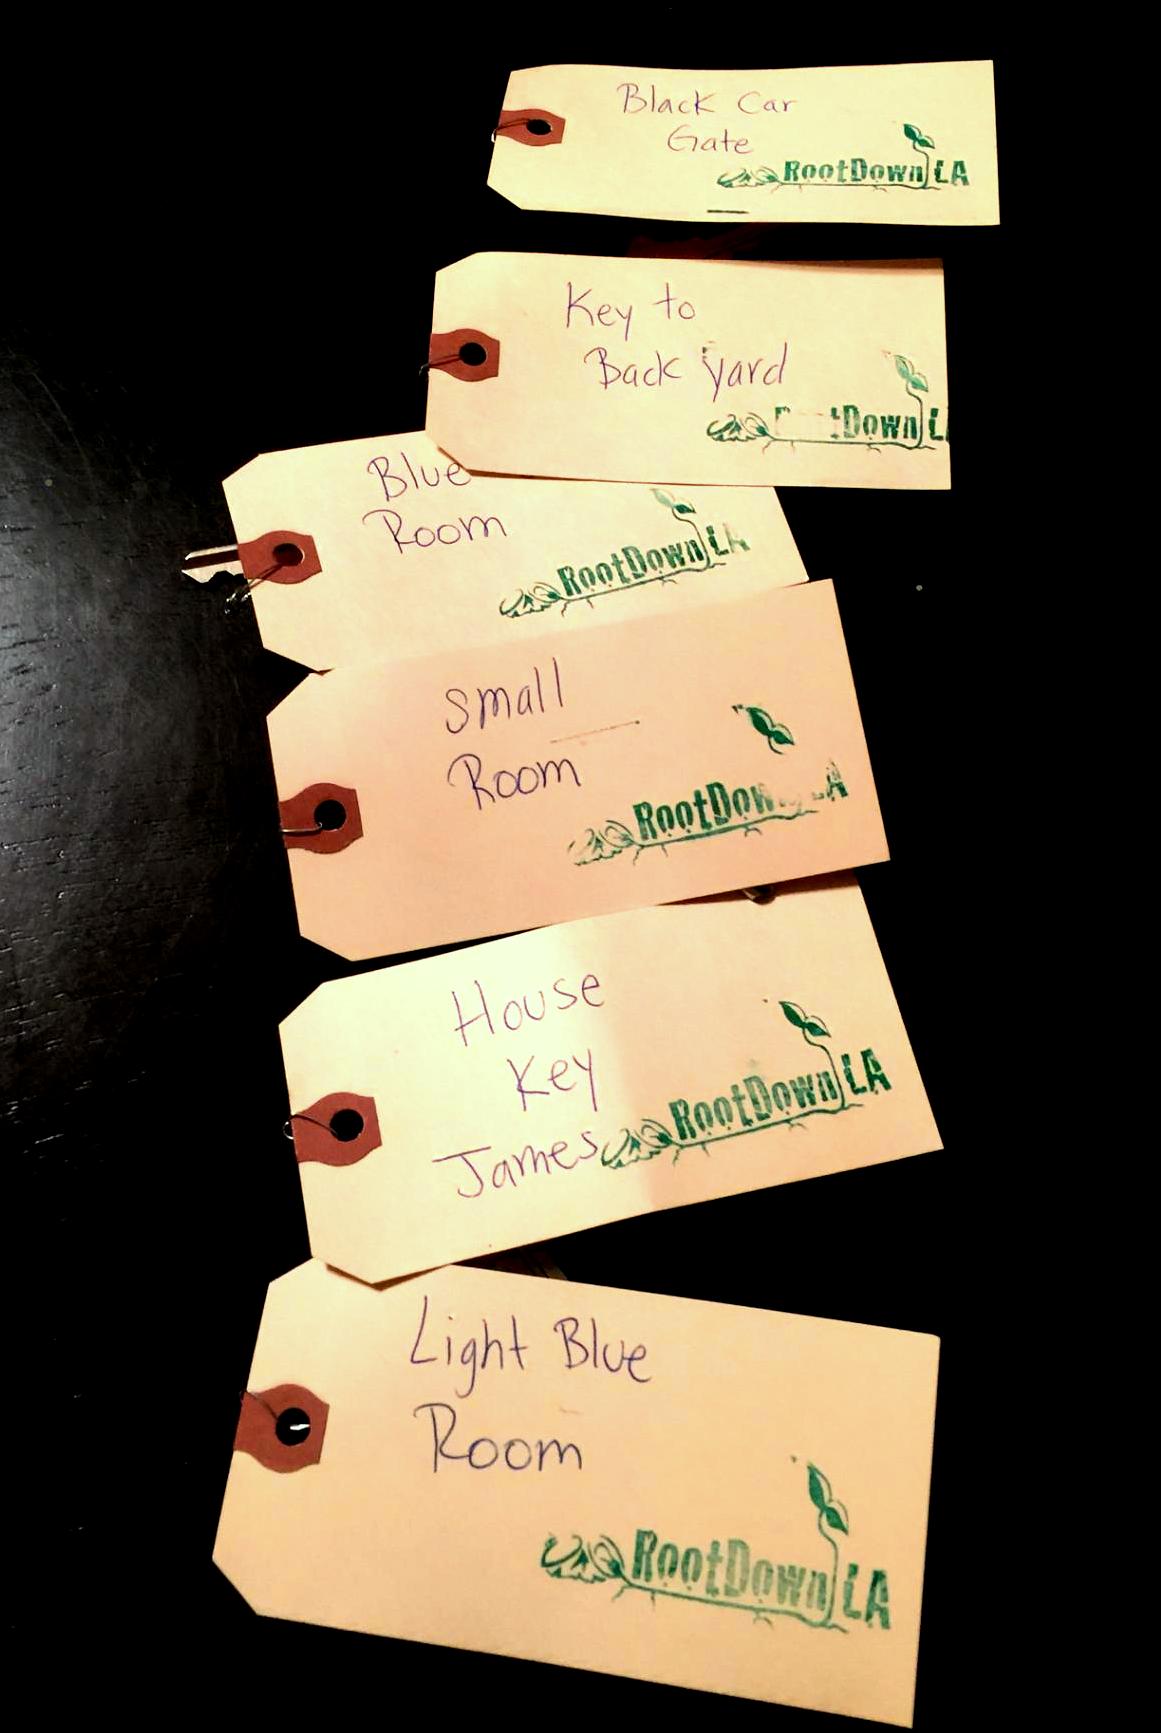 Black Car
Gate
RootDown LA
Key to
Back yard
Down L
Blue
Room
RootDown LA
small
Room
RootDow A
House
Key
James
RootDown LA
Light Blue
Room
RootDown LA